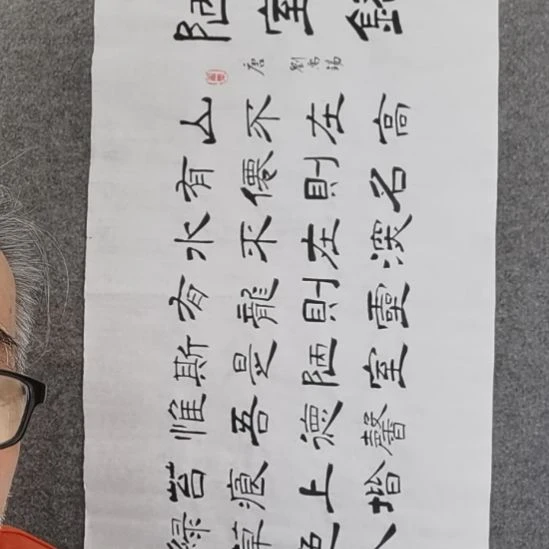 陋室銘
唐 劉禹錫
山不在高
有僊則名
水不在深
有龍則靈
斯是陋室
惟吾德馨
苔痕上堦
綠草色入